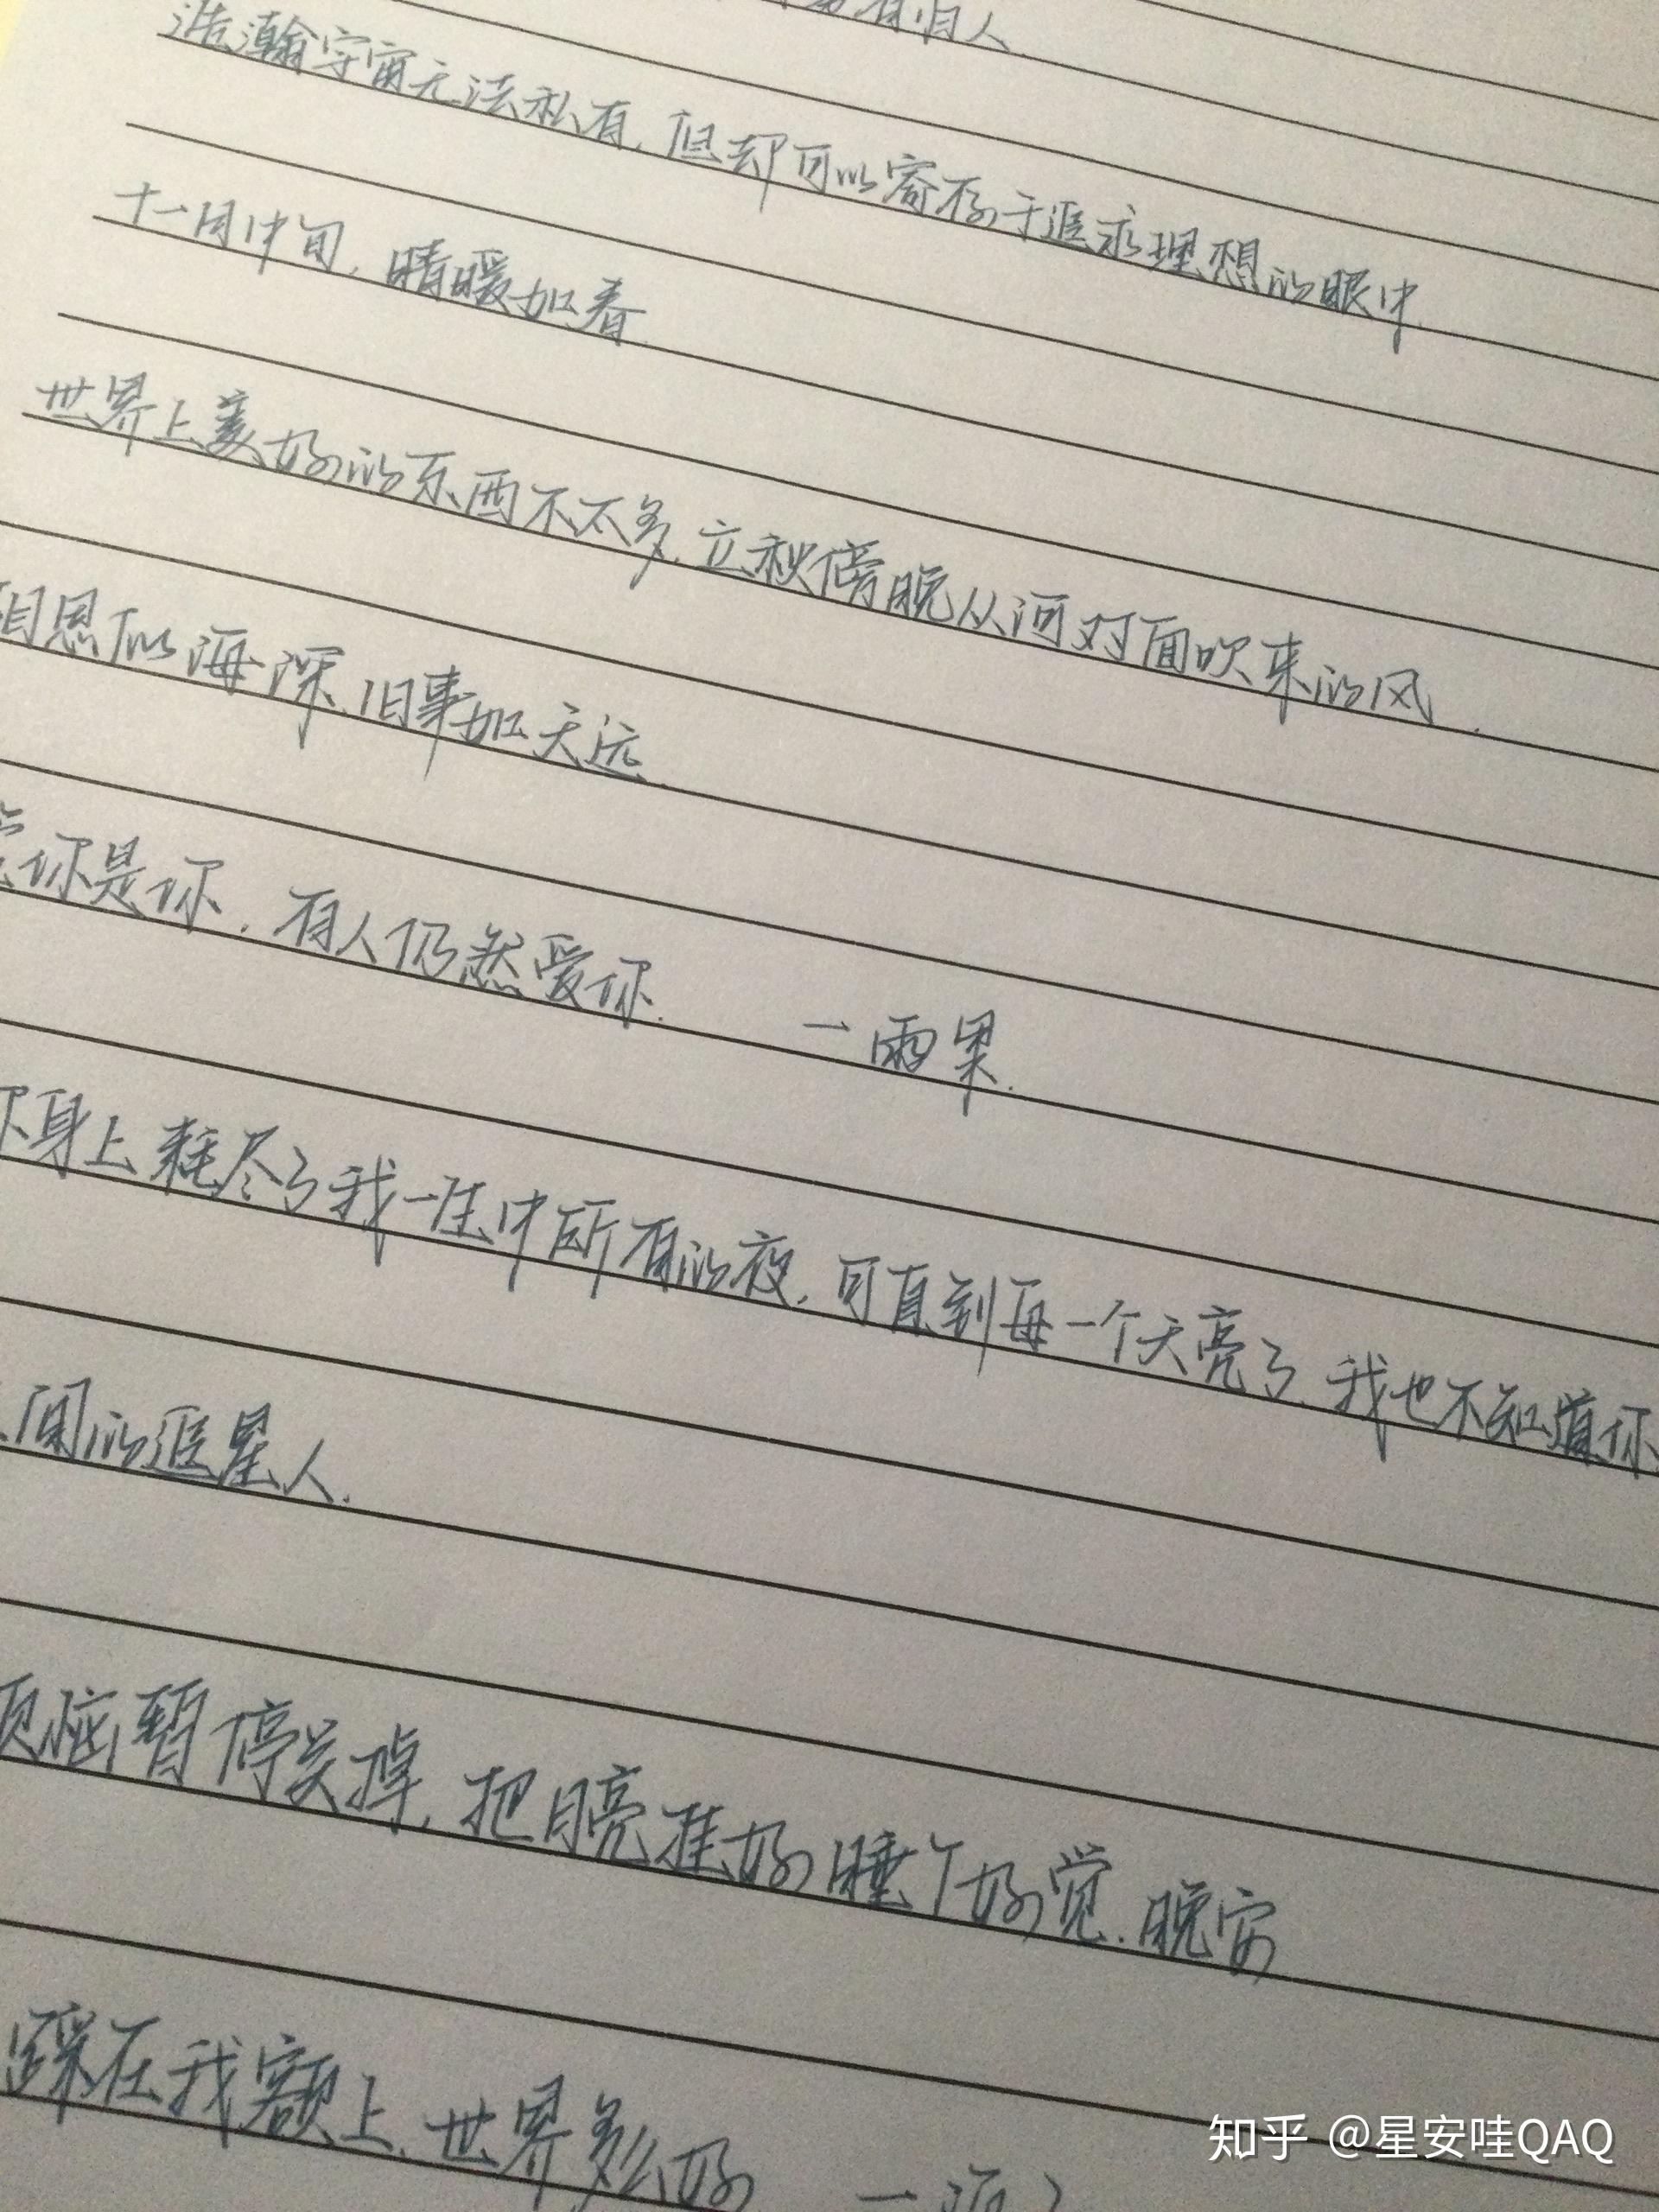 有归人
浩瀚宇宙无法私有,但却可以寄存于追求理想的眼中
十一月中旬,晴暖如春
世界上美好的东西不太多,立秋傍晚从河对面吹来的风.
相思似海深,旧事如天远.
你是你,有人仍然爱你. —雨果.
你身上耗尽了我一生中所有的夜,可直到每一个天亮了,我也不知道你
间的追星人.
烦恼暂停关掉,把月亮挂好睡个好觉.晚安
踩在我额上,世界多么好
知乎 @星安哇QAQ